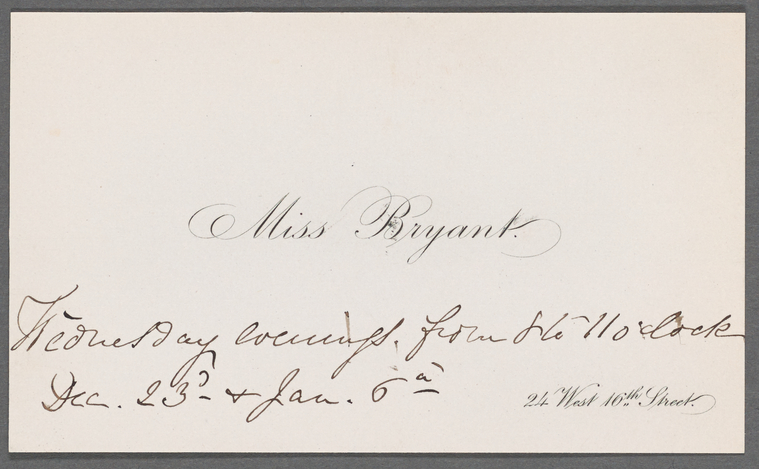 Miss Bryant.
Wednesday evenings. from 8 to 11 o'clock
Dec. 23d & Jan. 6th
24 West 16th Street.